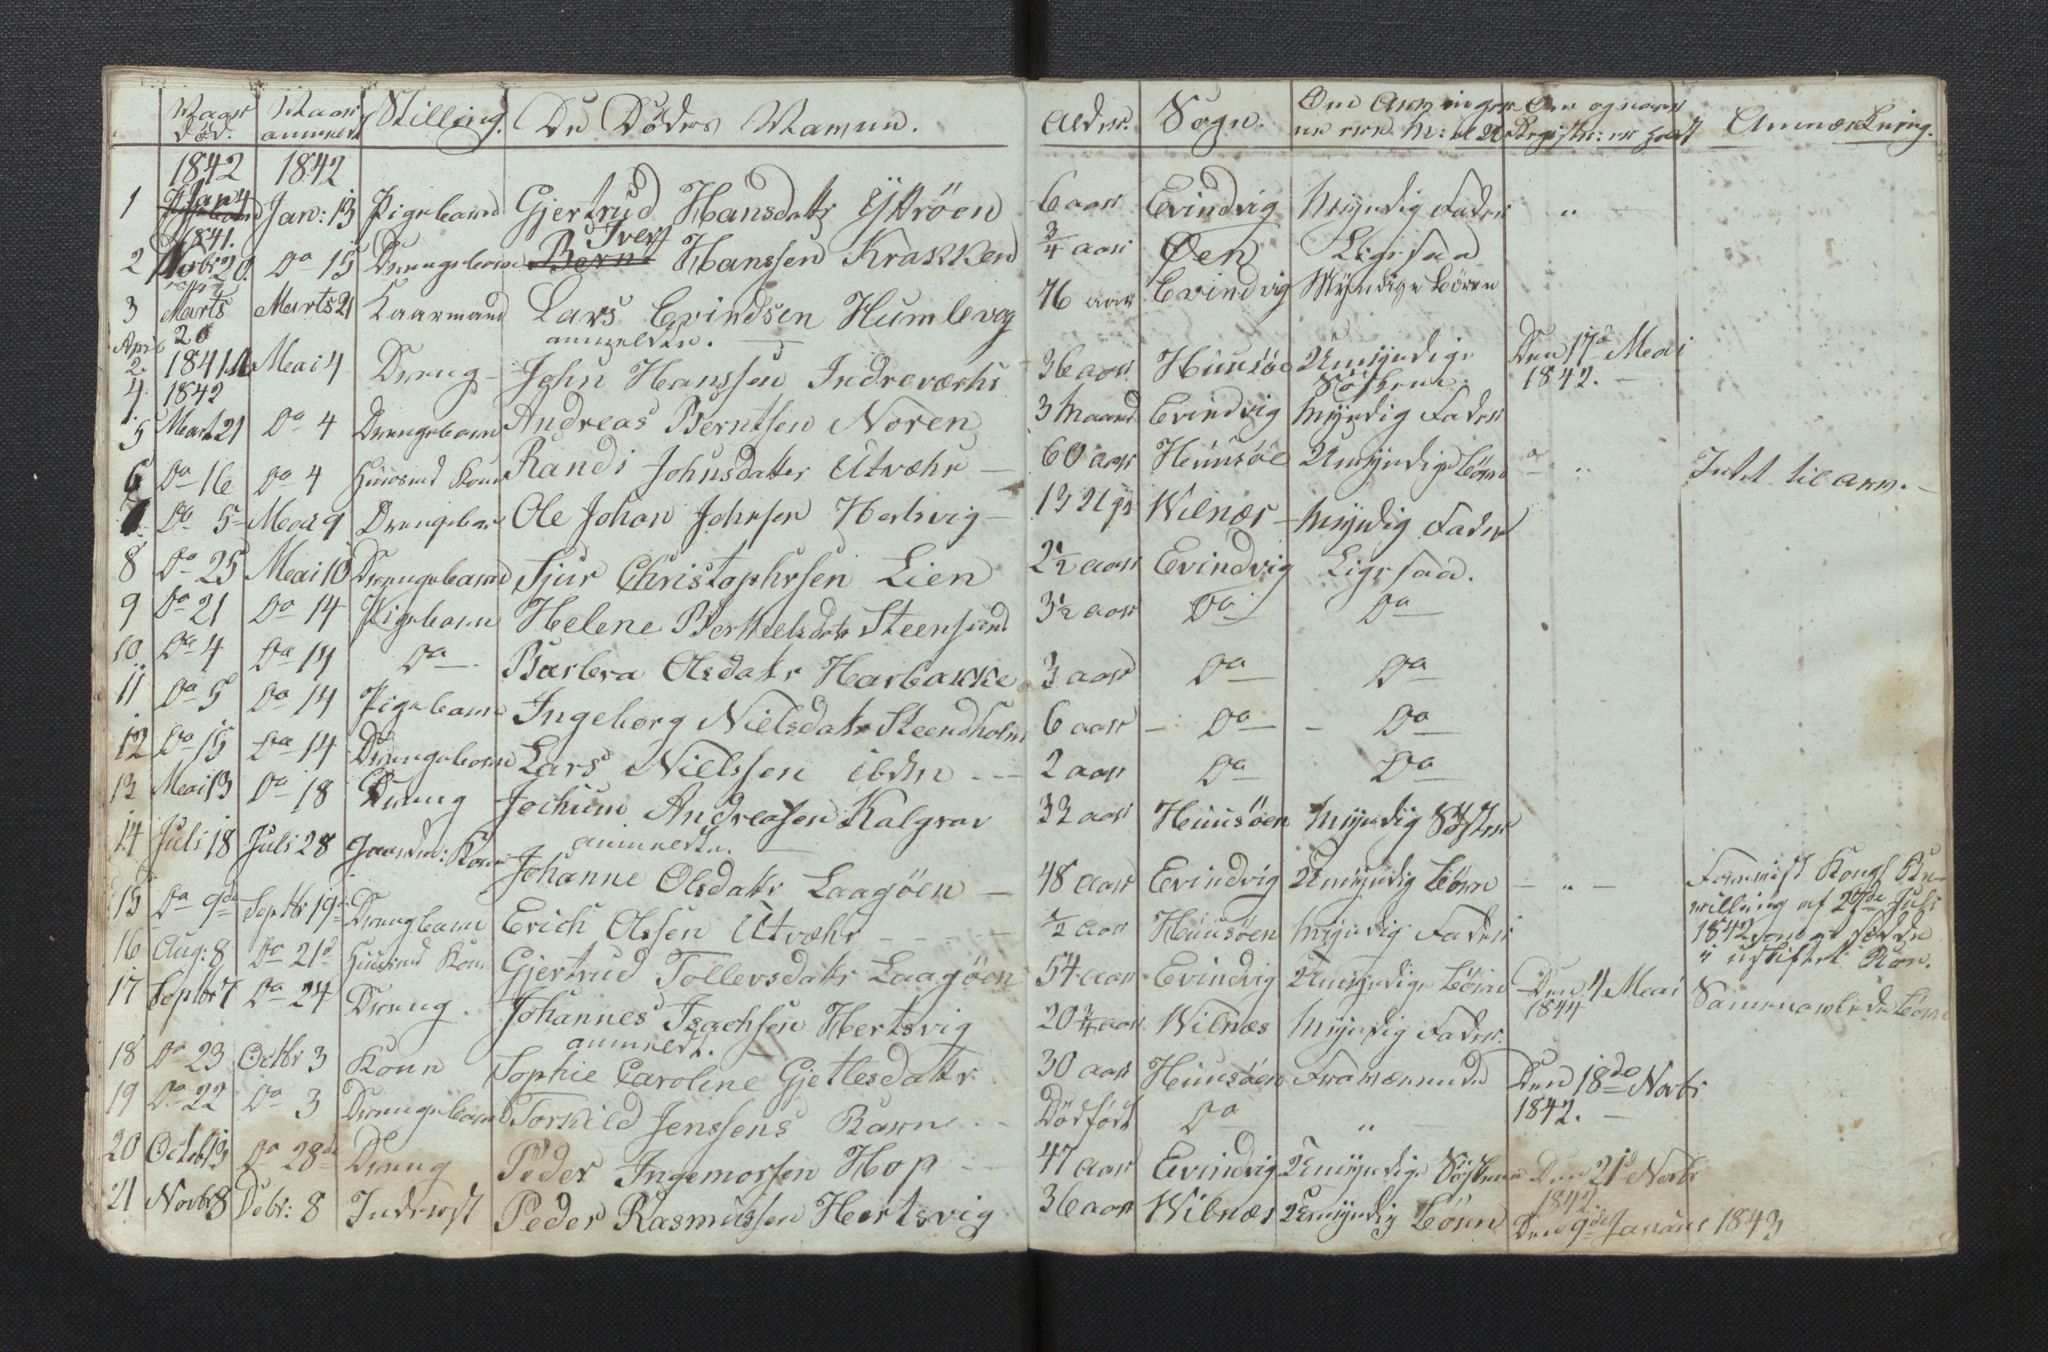 Naar død. Naar anmeldt Stilling. De Dødes Navnne. Alder. Sogn. Om Arvingerne ere M: el U Om og naar Registr: er holdt Anmærkning.
1842 1842
1 Jan 4 Jan: 13 Pigebarn Gjertrud Hansdatr Yttröen 6 aar Evindvig Myndig Fader "
1841. Ivert
2 Novbr 20. Do 15 Drengebarn Bern Hanssen Krakken 3/4 aar Øen Ligesaa
3 Marts 20 Marts 21 Kaarmand Lars Evindsen Humlevog 76 aar Evindvig Myndige Börn
anmeldte.
4 1841 Mai 4 Dreng John Hanssen Indreværhr 36 aar Huusøe Umyndige Søskene. Den 17d Mai 1842.
1842
5 Mart 21 Do 4 Drengebarn Andreas Berntsen Noren 3 Maaned Evindvig Myndig Fader
6 Do 16 Do 4 Huusmd Kone Randi Johnsdatter Utvæhr 60 aar Huusøe Umyndige Börn " Intet til arv.
7. Do 5 Mai 9 Drengebarn Ole Johan Johnsen Hertsvig 13 Uger Wilnæs Myndig Fader
8 Do 25 Mai 10 Drengebarn Sjur Christophersen Lien 2 1/2 aar Evindvig Ligesaa.
9 Do 21 Do 14 Pigebarn Helene Bertheelsdatr Steensund 3 1/2 aar Do Do
10 Do 4 Do 14 Do Barbra Olsdatr Harbakke 3 aar Do Do
11 Do 5 Do 14 Pigebarn Ingeborg Nielsdatr Steendholm 6 aar Do Do
12 Do 15 Do 14 Drengebarn Lars Nielssen ibdm 2 aar Do Do
13 Mai 13 Do 18 Dreng Jochum Andreasen Kalgrav 33 aar Huusöen Myndig Søster
anmeldte.
14 Juli 18 Juli 28 Gaardm: Kone Johanne Olsdatr Laagöen 48 aar Evindvig Umyndig Börn " Formeist Kongl Be-
willning af 29de Juli
1842 som at sidde
i uskiftet Boe.
15 Do 9de Septbr 19de Drengbarn Erich Olssen Utvæhr 1/2 aar Huusöen Myndig Fader
16 Aug: 8 Do 21d Huusmd Kone Gjertrud Tollevsdatr Laagöen 54 aar Evindvig Umyndige Börn Den 4 Mai 1844 Sammenavlede Börn
17 Septbr 7 Do 24 Dreng Johannes Isachsen Hertsvig 20 3/4 aar Wilnæs Myndig Fader.
anmeldt.
18 Do 23 Octbr 3 Kone Sophie Caroline Gjetlesdatr 30 aar Huusöen Fraværende Den 18de Novbr 1842.
19 Do 22 Do 3 Drengebarn Torkild Jenssens Barn Dödfödt Do "
20 Octob 13 Do 28de Dreng Peder Ingemorsen Hop 47 aar Evindvig Umyndige Søskene Den 21d Novbr 1842.
21 Novbr 8 Debr: 8 Inderst Peder Rasmussen Hertsvig 36 aar Wilnæs Umyndig Börn Den 9de Januar 1843